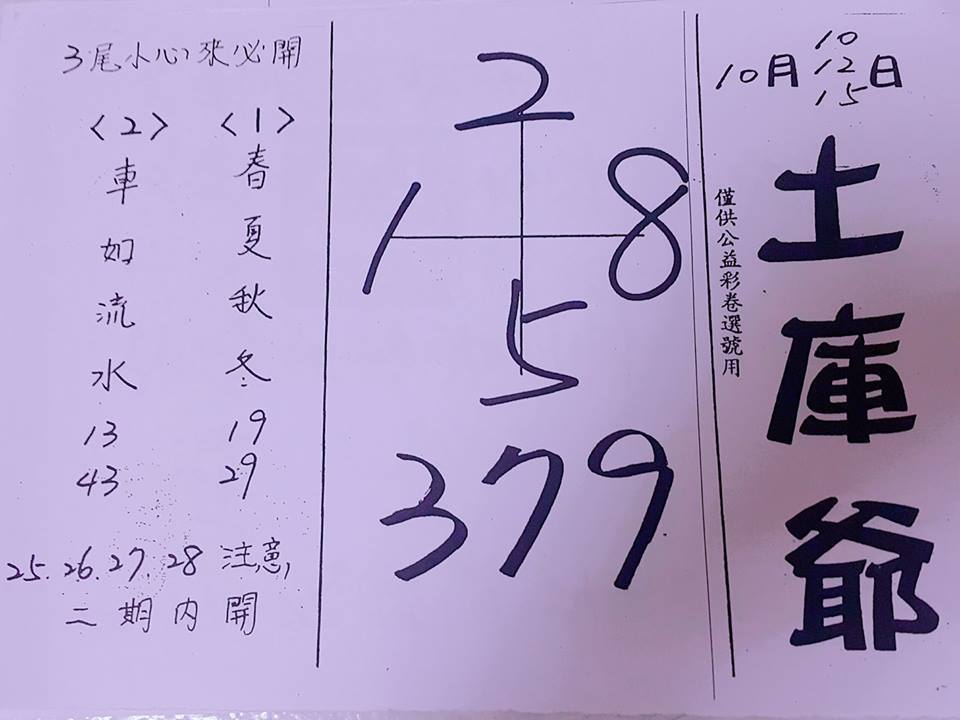 10月10 12 15日
土庫爺
僅供公益彩卷選號用
2
1 8
5
379
3尾小心來必開
〈1〉
春夏秋冬
19
29
〈2〉
車如流水
13
43
25.26.27.28 注意,
二期内開